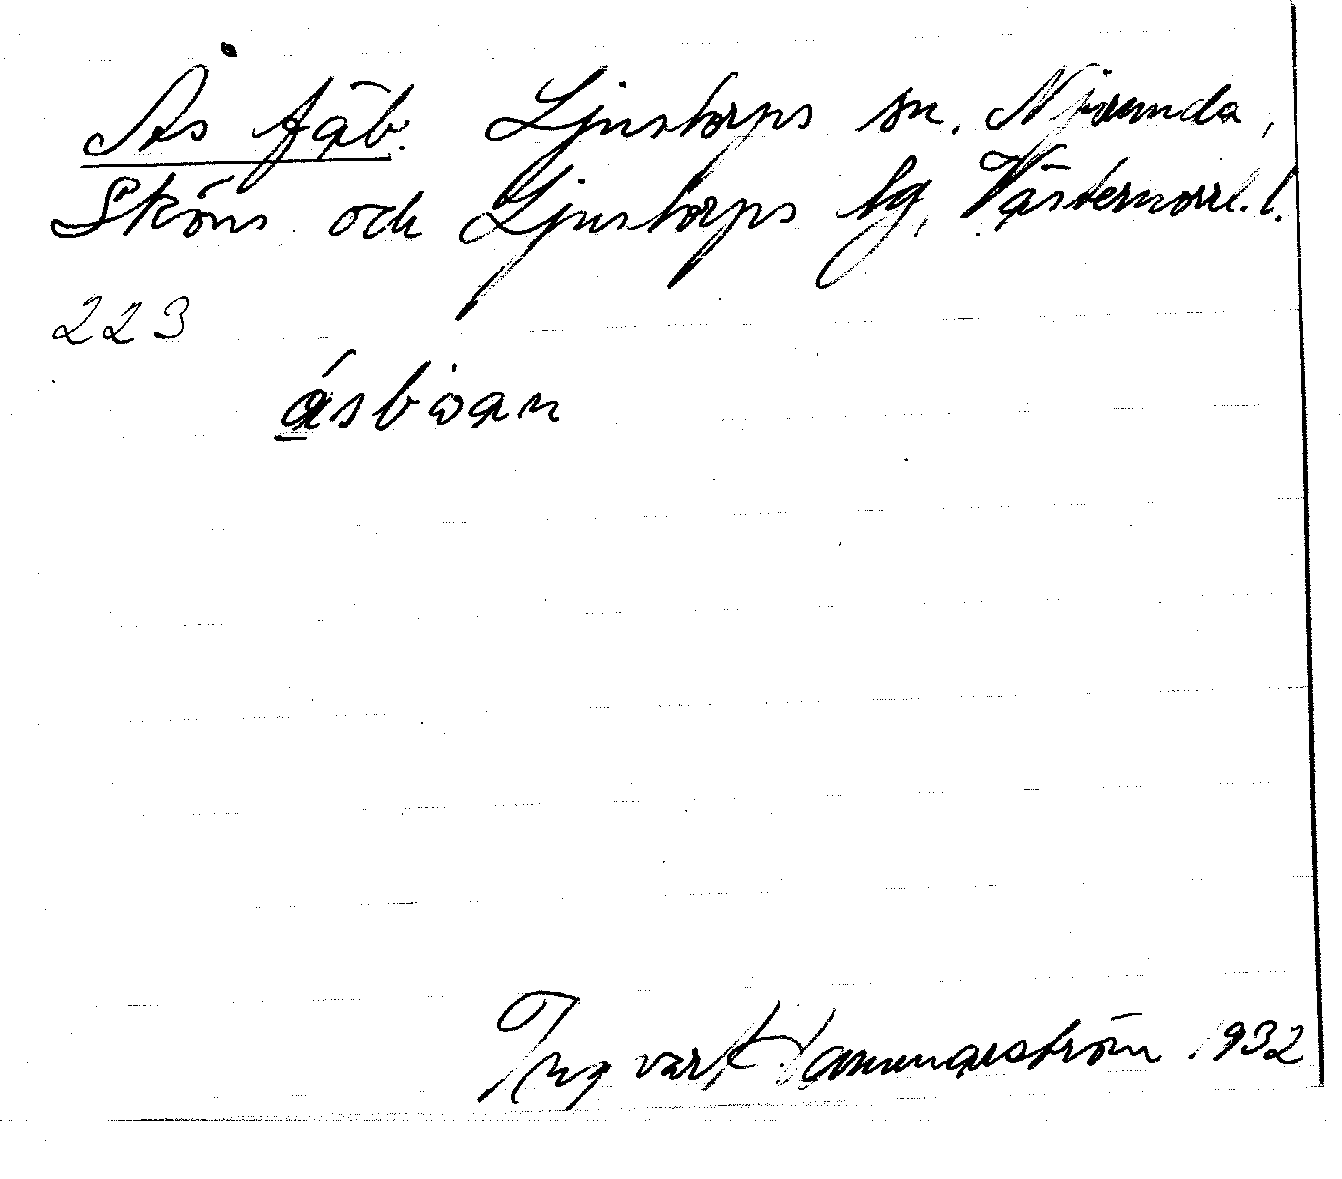 Ås fäb. Ljustorps sn. Njurunda,
Sköns och Ljustorps tg, Västernorrl. l.
223
åsbơan
Ingvar Hammarström 1932